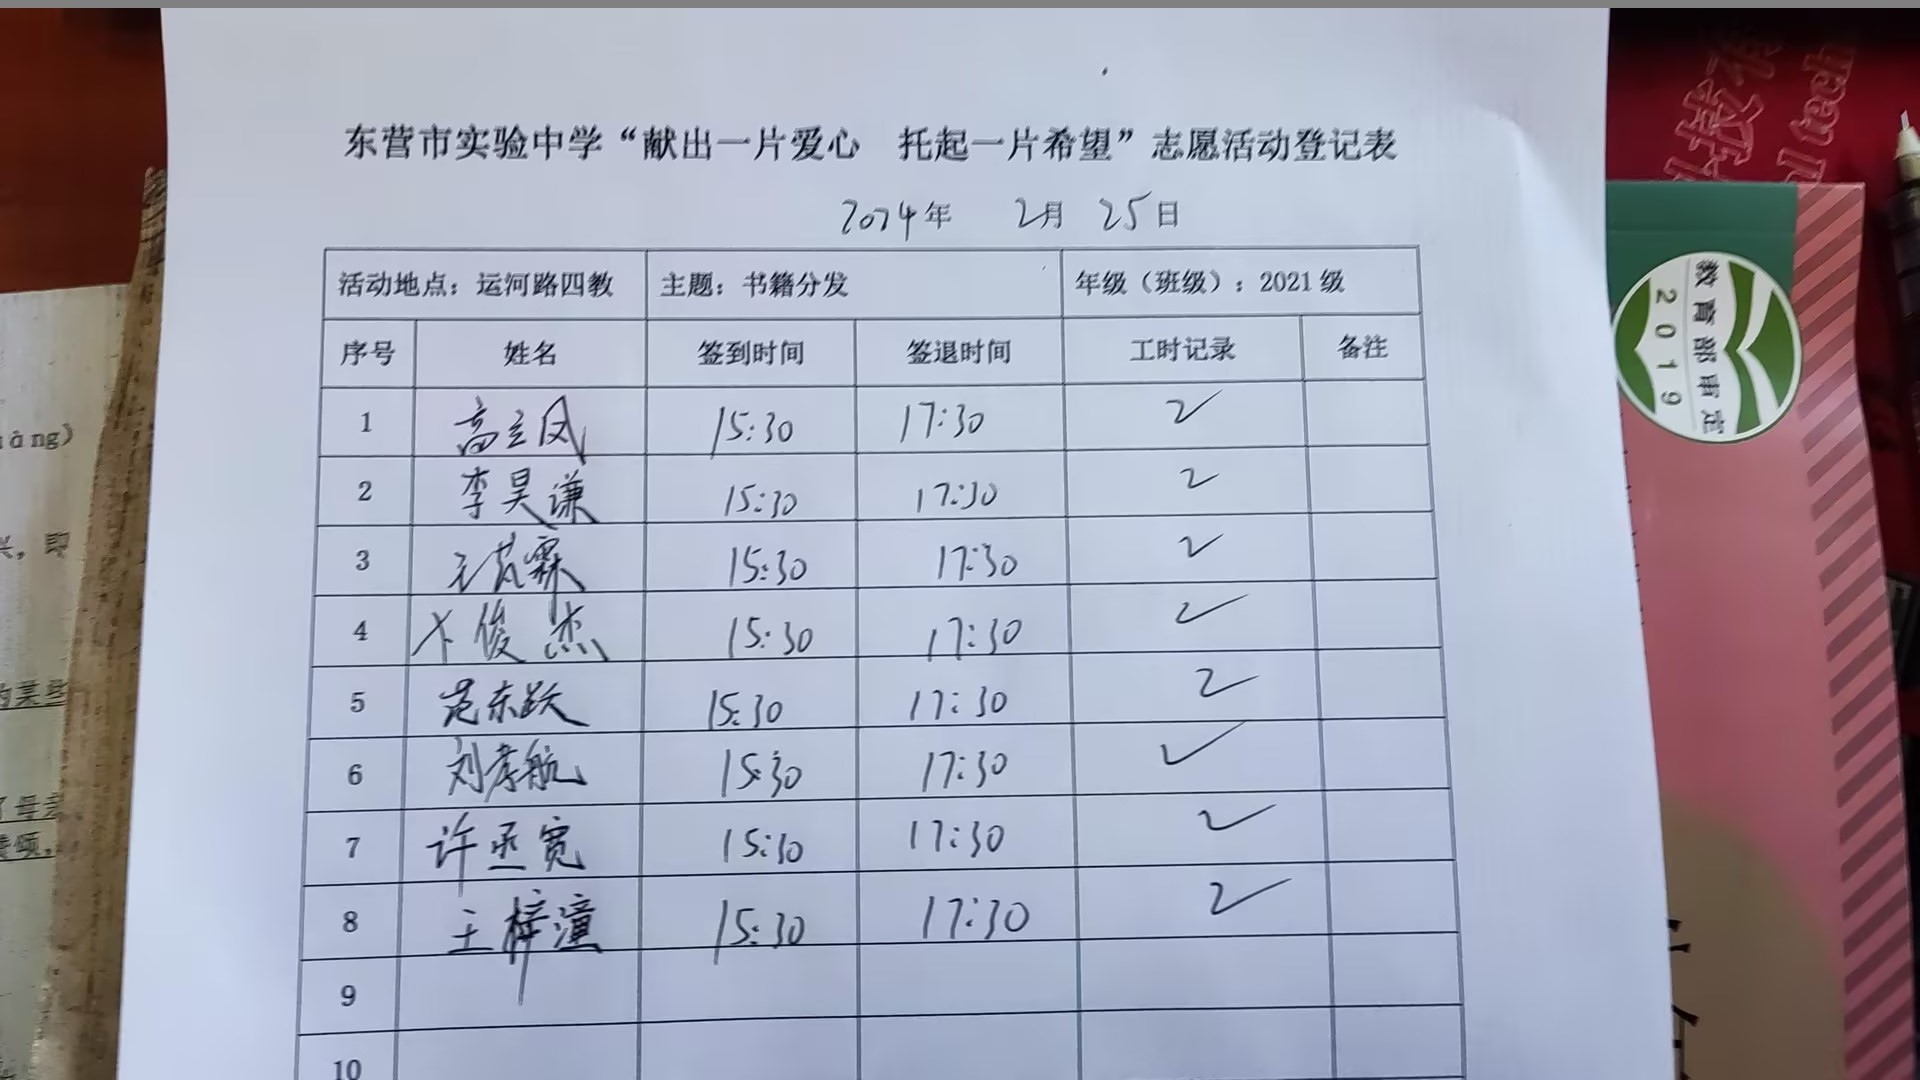 东营市实验中学“献出一片爱心 托起一片希望”志愿活动登记表
2024年 2月 25日
活动地点：运河路四教 主题：书籍分发 年级（班级）：2021级
序号 姓名 签到时间 签退时间 工时记录 备注
1 高立凤 15:30 17:30 2
2 李昊谦 15:30 17:30 2
3 王芃霖 15:30 17:30 2
4 卞俊杰 15:30 17:30 2
5 范东跃 15:30 17:30 2
6 刘孝航 15:30 17:30 2
7 许丞宽 15:30 17:30 2
8 王梓潼 15:30 17:30 2
9
10
教育部审定
2019
àng)
，即
的某些